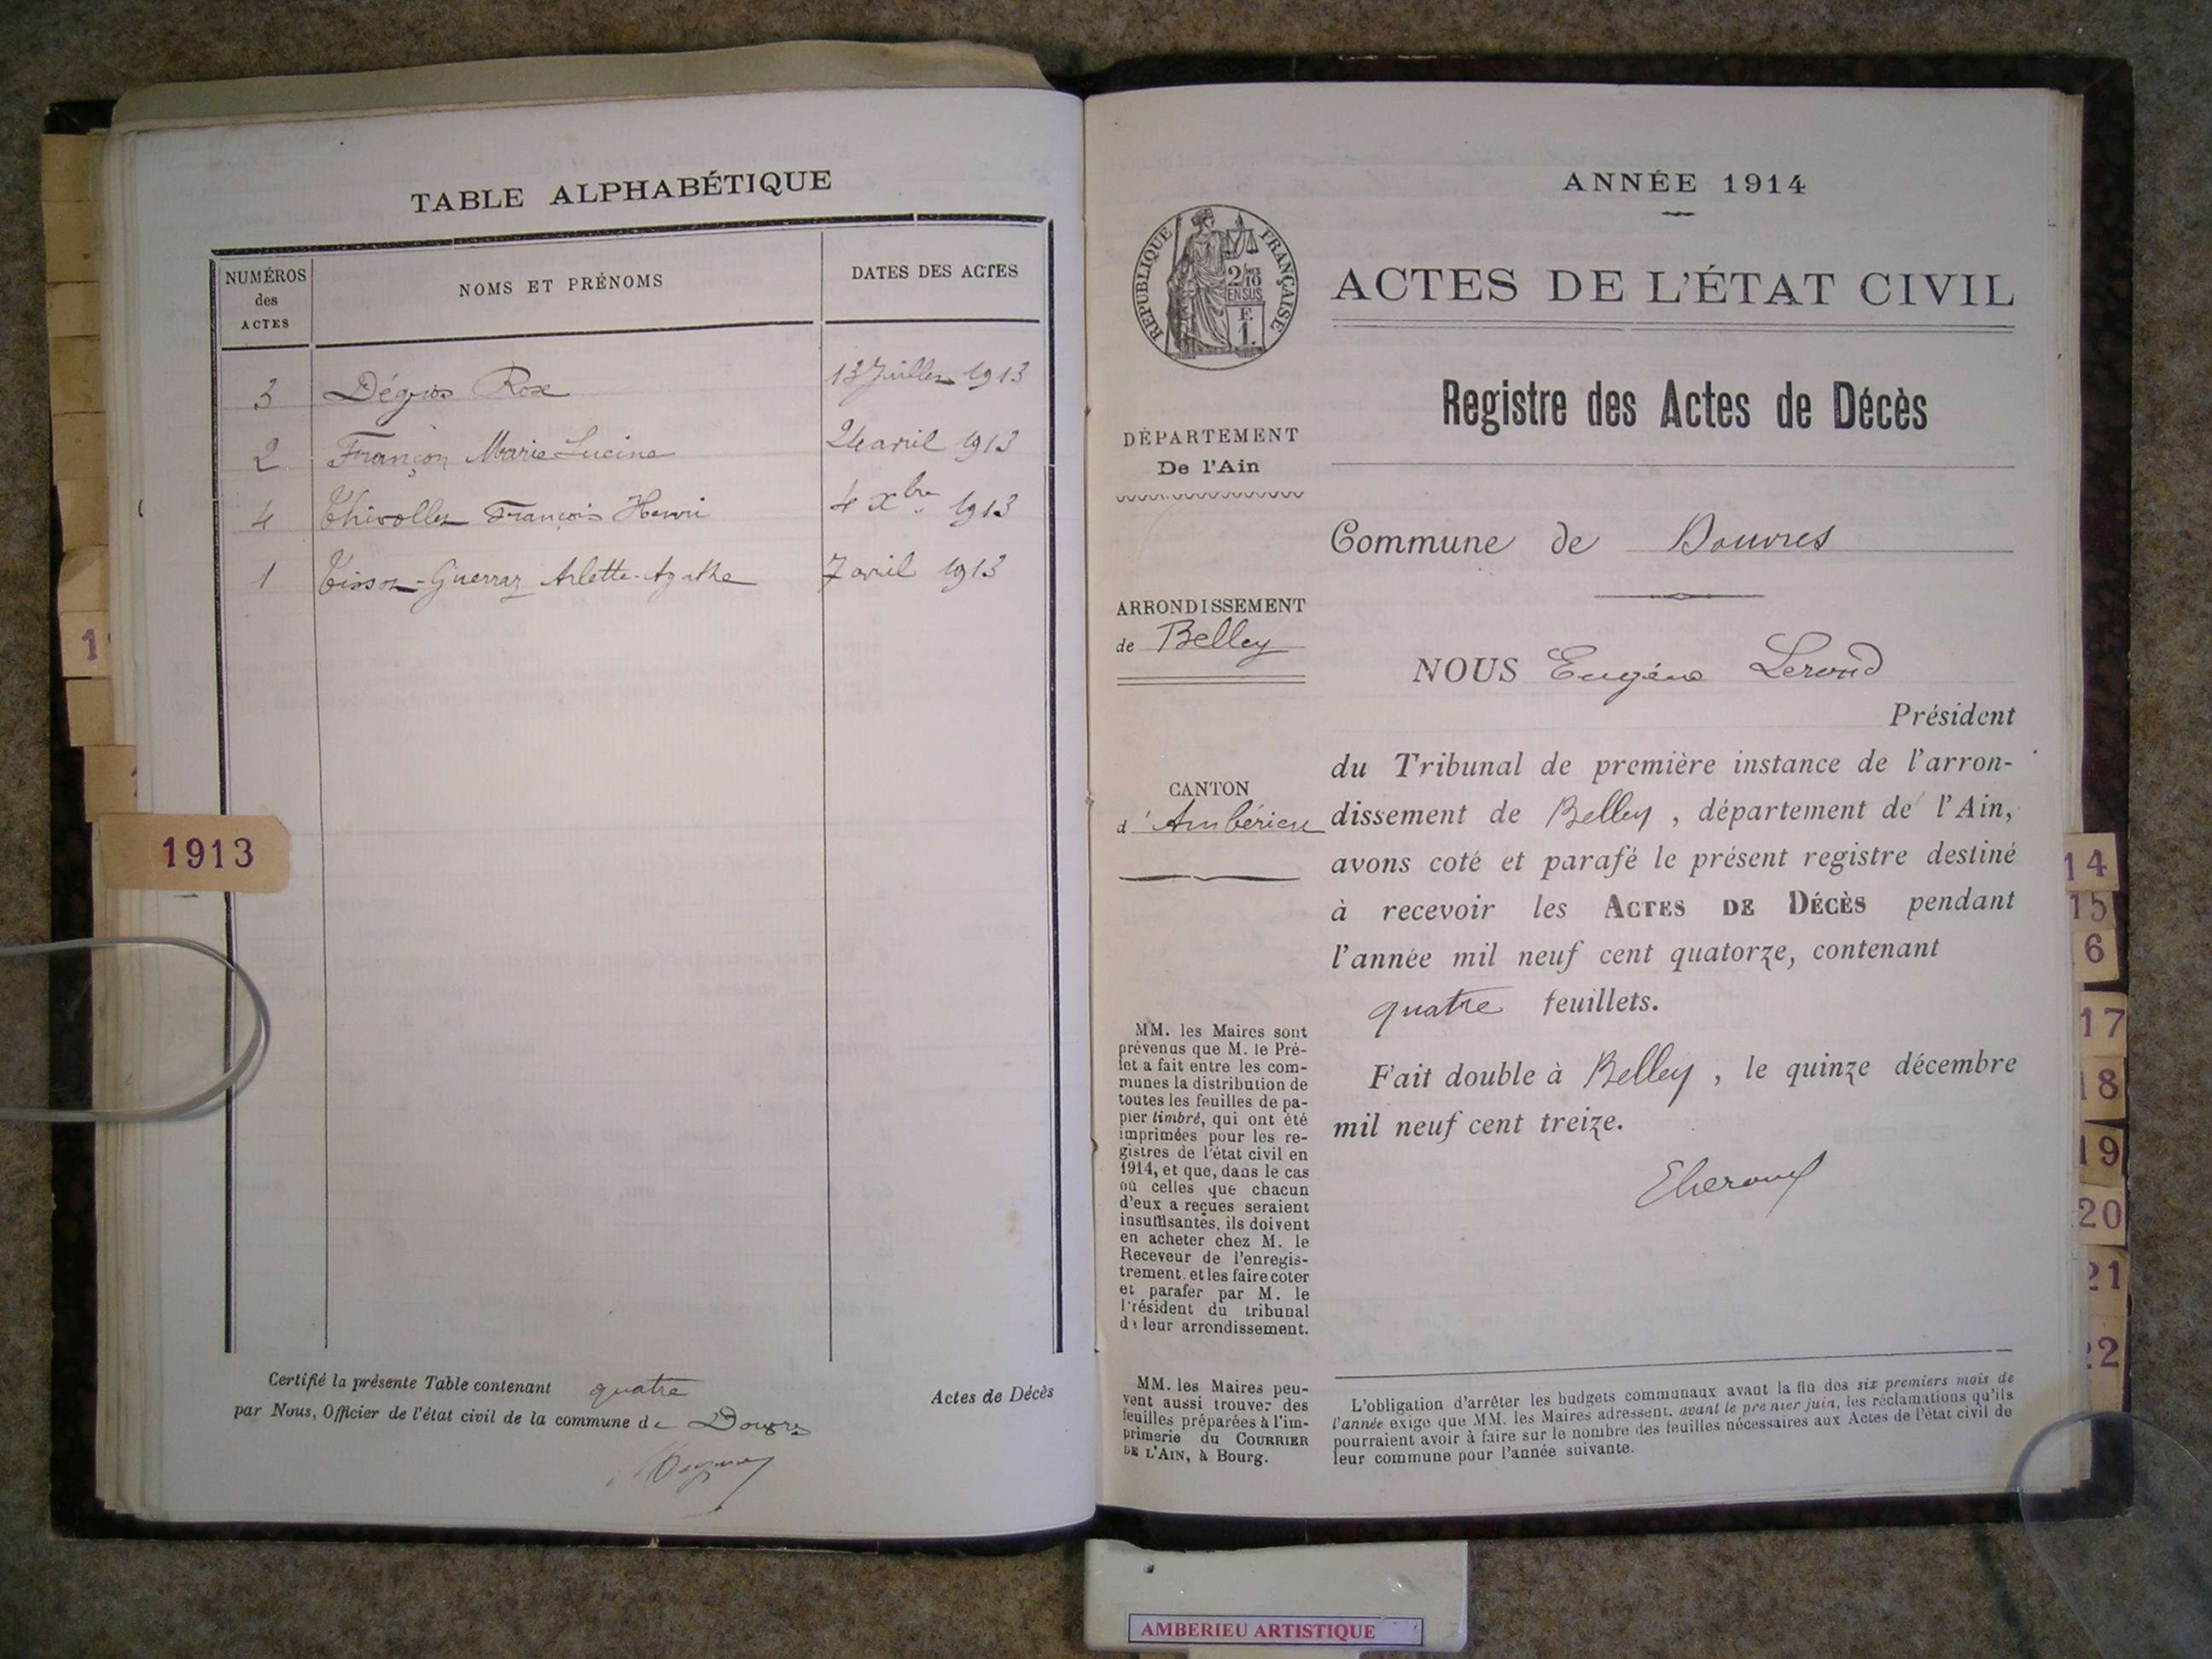 TABLE ALPHABÉTIQUE
NUMÉROS des ACTES
NOMS ET PRÉNOMS
DATES DES ACTES
3 Dégros Rose 13 Juillet 1913
2 Françon Marie Lucine 24 avril 1913
4 Thivollet François Henri 4 Xbre 1913
1 Tisson-Guerraz Arlette-Agathe 7 avril 1913
1913
Certifié la présente Table contenant quatre Actes de Décès
par Nous, Officier de l'état civil de la commune de Douvres
ANNÉE 1914
RÉPUBLIQUE FRANÇAISE
2/10
EN SUS
F.
1.
ACTES DE L'ÉTAT CIVIL
Registre des Actes de Décès
DÉPARTEMENT
De l'Ain
Commune de Douvres
ARRONDISSEMENT
de Belley
NOUS Eugène Lerond
Président
CANTON
d'Ambérieu
du Tribunal de première instance de l'arron-
dissement de Belley, département de l'Ain,
avons coté et parafé le présent registre destiné
à recevoir les ACTES DE DÉCÈS pendant
l'année mil neuf cent quatorze, contenant
quatre feuillets.
Fait double à Belley, le quinze décembre
mil neuf cent treize.
MM. les Maires sont
prévenus que M. le Pré-
fet a fait entre les com-
munes la distribution de
toutes les feuilles de pa-
pier timbré, qui ont été
imprimées pour les re-
gistres de l'état civil en
1914, et que, dans le cas
où celles que chacun
d'eux a reçues seraient
insuffisantes, ils doivent
en acheter chez M. le
Receveur de l'enregis-
trement, et les faire coter
et parafer par M. le
Président du tribunal
de leur arrondissement.
MM. les Maires peu-
vent aussi trouver des
feuilles préparées à l'im-
primerie du COURRIER
DE L'AIN, à Bourg.
L'obligation d'arrêter les budgets communaux avant la fin des six premiers mois de
l'année exige que MM. les Maires adressent, avant le premier juin, les réclamations qu'ils
pourraient avoir à faire sur le nombre des feuilles nécessaires aux Actes de l'état civil de
leur commune pour l'année suivante.
14
15
6
17
18
19
20
21
22
AMBERIEU ARTISTIQUE